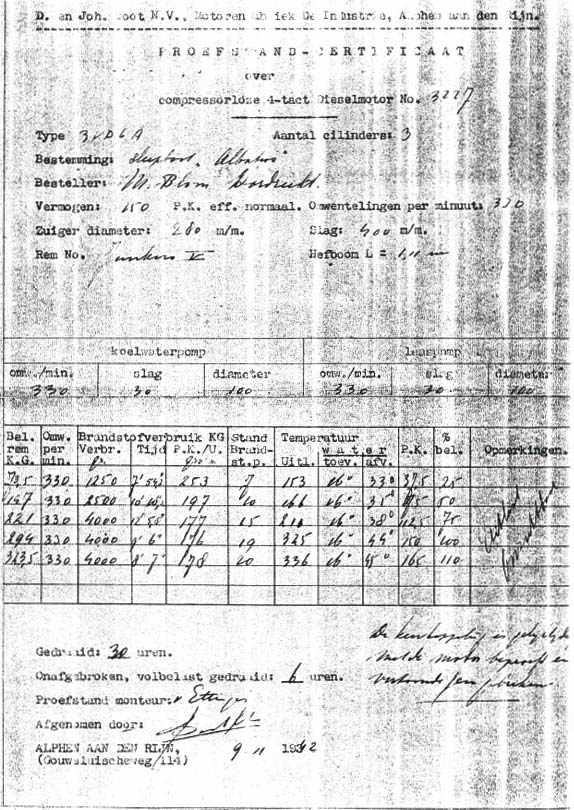 D. en Joh. Boot N.V., Motorenfabriek De Industrie, Alphen aan den Rijn.
PROEFSTAND-CERTIFICAAT
over
compressorloze 4-tact Dieselmotor No. 3227
Type 3VD6A Aantal cilinders: 3
Bestemming: sleepboot "Albatros"
Besteller: M. Blom Dordrecht.
Vermogen: 150 P.K. eff. normaal. Omwentelingen per minuut: 330
Zuiger diameter: 280 m/m. Slag: 400 m/m.
Rem No. Junkers V Hefboom L = 1,11 m
koelwaterpomp lenspomp
omw./min. slag diameter omw./min. slag diameter
330 30 100 330 30 100
Bel. rem K.G. Omw. per min. Brandstofverbruik KG Verbr. gr. Tijd P.K./U. Stand Brandst.p. Temperatuur Uitl. water toev. afv. P.K. % bel. Opmerkingen.
73,5 330 1250 253 7 153 16° 33° 37,5 25
147 330 2500 197 10 166 16° 35° 75 50
221 330 4000 12' 58" 177 15 16° 38° 112,5 75
294 330 4000 9' 6" 176 19 325 16° 44° 150 100
323,5 330 4000 8' 7" 178 20 336 16° 45° 165 110
De keerkoppeling is gelijktijdig
met de motor beproefd en
vertoonde geen gebreken
Gedraaid: 30 uren.
Onafgebroken, volbelast gedraaid: 6 uren.
Proefstand monteur: Ettinger
Afgenomen door:
ALPHEN AAN DEN RIJN, 9 11 1942
(Gouwsluischeweg/114)